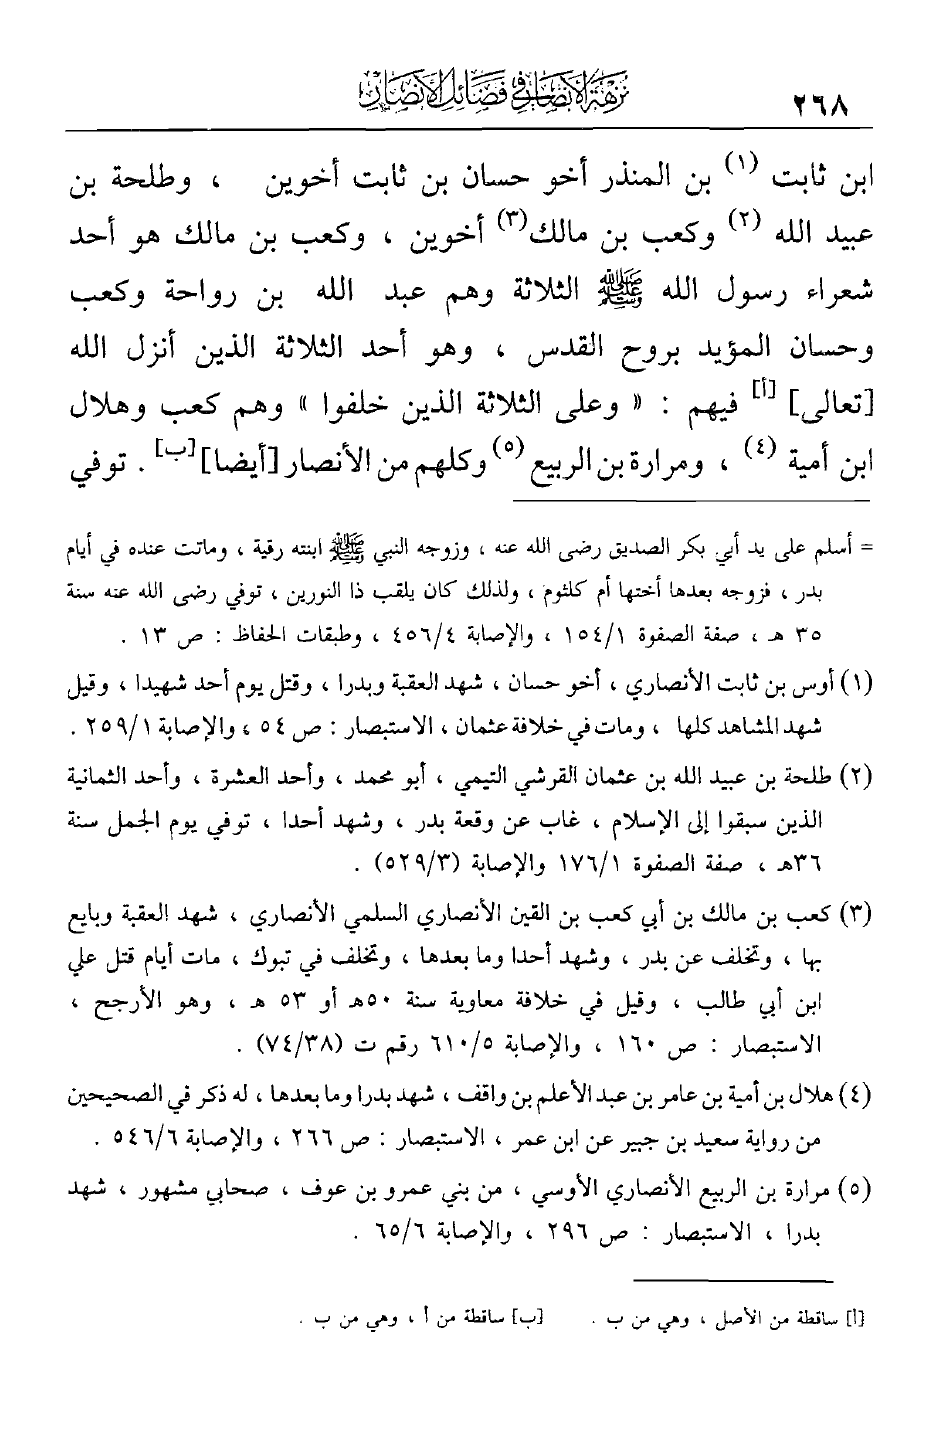 ٢٦٨ نزهة الأبصار في فضائل الأنصار
ابن ثابت (١) بن المنذر أخو حسان بن ثابت أخوين ، وطلحة بن
عبيد الله (٢) وكعب بن مالك(٣) أخوين ، وكعب بن مالك هو أحد
شعراء رسول الله ﷺ الثلاثة وهم عبد الله بن رواحة وكعب
وحسان المؤيد بروح القدس ، وهو أحد الثلاثة الذين أنزل الله
[تعالى] [أ] فيهم : « وعلى الثلاثة الذين خلفوا » وهم كعب وهلال
ابن أمية (٤) ، ومرارة بن الربيع (٥) وكلهم من الأنصار [أيضا] [ب] . توفي
= أسلم على يد أبي بكر الصديق رضى الله عنه ، وزوجه النبي ﷺ ابنته رقية ، وماتت عنده في أيام
بدر ، فزوجه بعدها أختها أم كلثوم ، ولذلك كان يلقب ذا النورين ، توفي رضى الله عنه سنة
٣٥ هـ ، صفة الصفوة ١٥٤/١ ، والإصابة ٤٥٦/٤ ، وطبقات الحفاظ : ص ١٣ .
(١) أوس بن ثابت الأنصاري ، أخو حسان ، شهد العقبة وبدرا ، وقتل يوم أحد شهيدا ، وقيل
شهد المشاهد كلها ، ومات في خلافة عثمان ، الاستبصار : ص ٥٤ ، والإصابة ٢٥٩/١ .
(٢) طلحة بن عبيد الله بن عثمان القرشي التيمي ، أبو محمد ، وأحد العشرة ، وأحد الثمانية
الذين سبقوا إلى الإسلام ، غاب عن وقعة بدر ، وشهد أحدا ، توفي يوم الجمل سنة
٣٦هـ ، صفة الصفوة ١٧٦/١ والإصابة (٥٢٩/٣) .
(٣) كعب بن مالك بن أبي كعب بن القين الأنصاري السلمي الأنصاري ، شهد العقبة وبايع
بها ، وتخلف عن بدر ، وشهد أحدا وما بعدها ، وتخلف في تبوك ، مات أيام قتل علي
ابن أبي طالب ، وقيل في خلافة معاوية سنة ٥٠هـ أو ٥٣ هـ ، وهو الأرجح ،
الاستبصار : ص ١٦٠ ، والإصابة ٦١٠/٥ رقم ت (٧٤/٣٨) .
(٤) هلال بن أمية بن عامر بن عبد الأعلم بن واقف ، شهد بدرا وما بعدها ، له ذكر في الصحيحين
من رواية سعيد بن جبير عن ابن عمر ، الاستبصار : ص ٢٦٦ ، والإصابة ٥٤٦/٦ .
(٥) مرارة بن الربيع الأنصاري الأوسي ، من بني عمرو بن عوف ، صحابي مشهور ، شهد
بدرا ، الاستبصار : ص ٢٩٦ ، والإصابة ٦٥/٦ .
[أ] ساقطة من الأصل ، وهي من ب . [ب] ساقطة من أ ، وهي من ب .